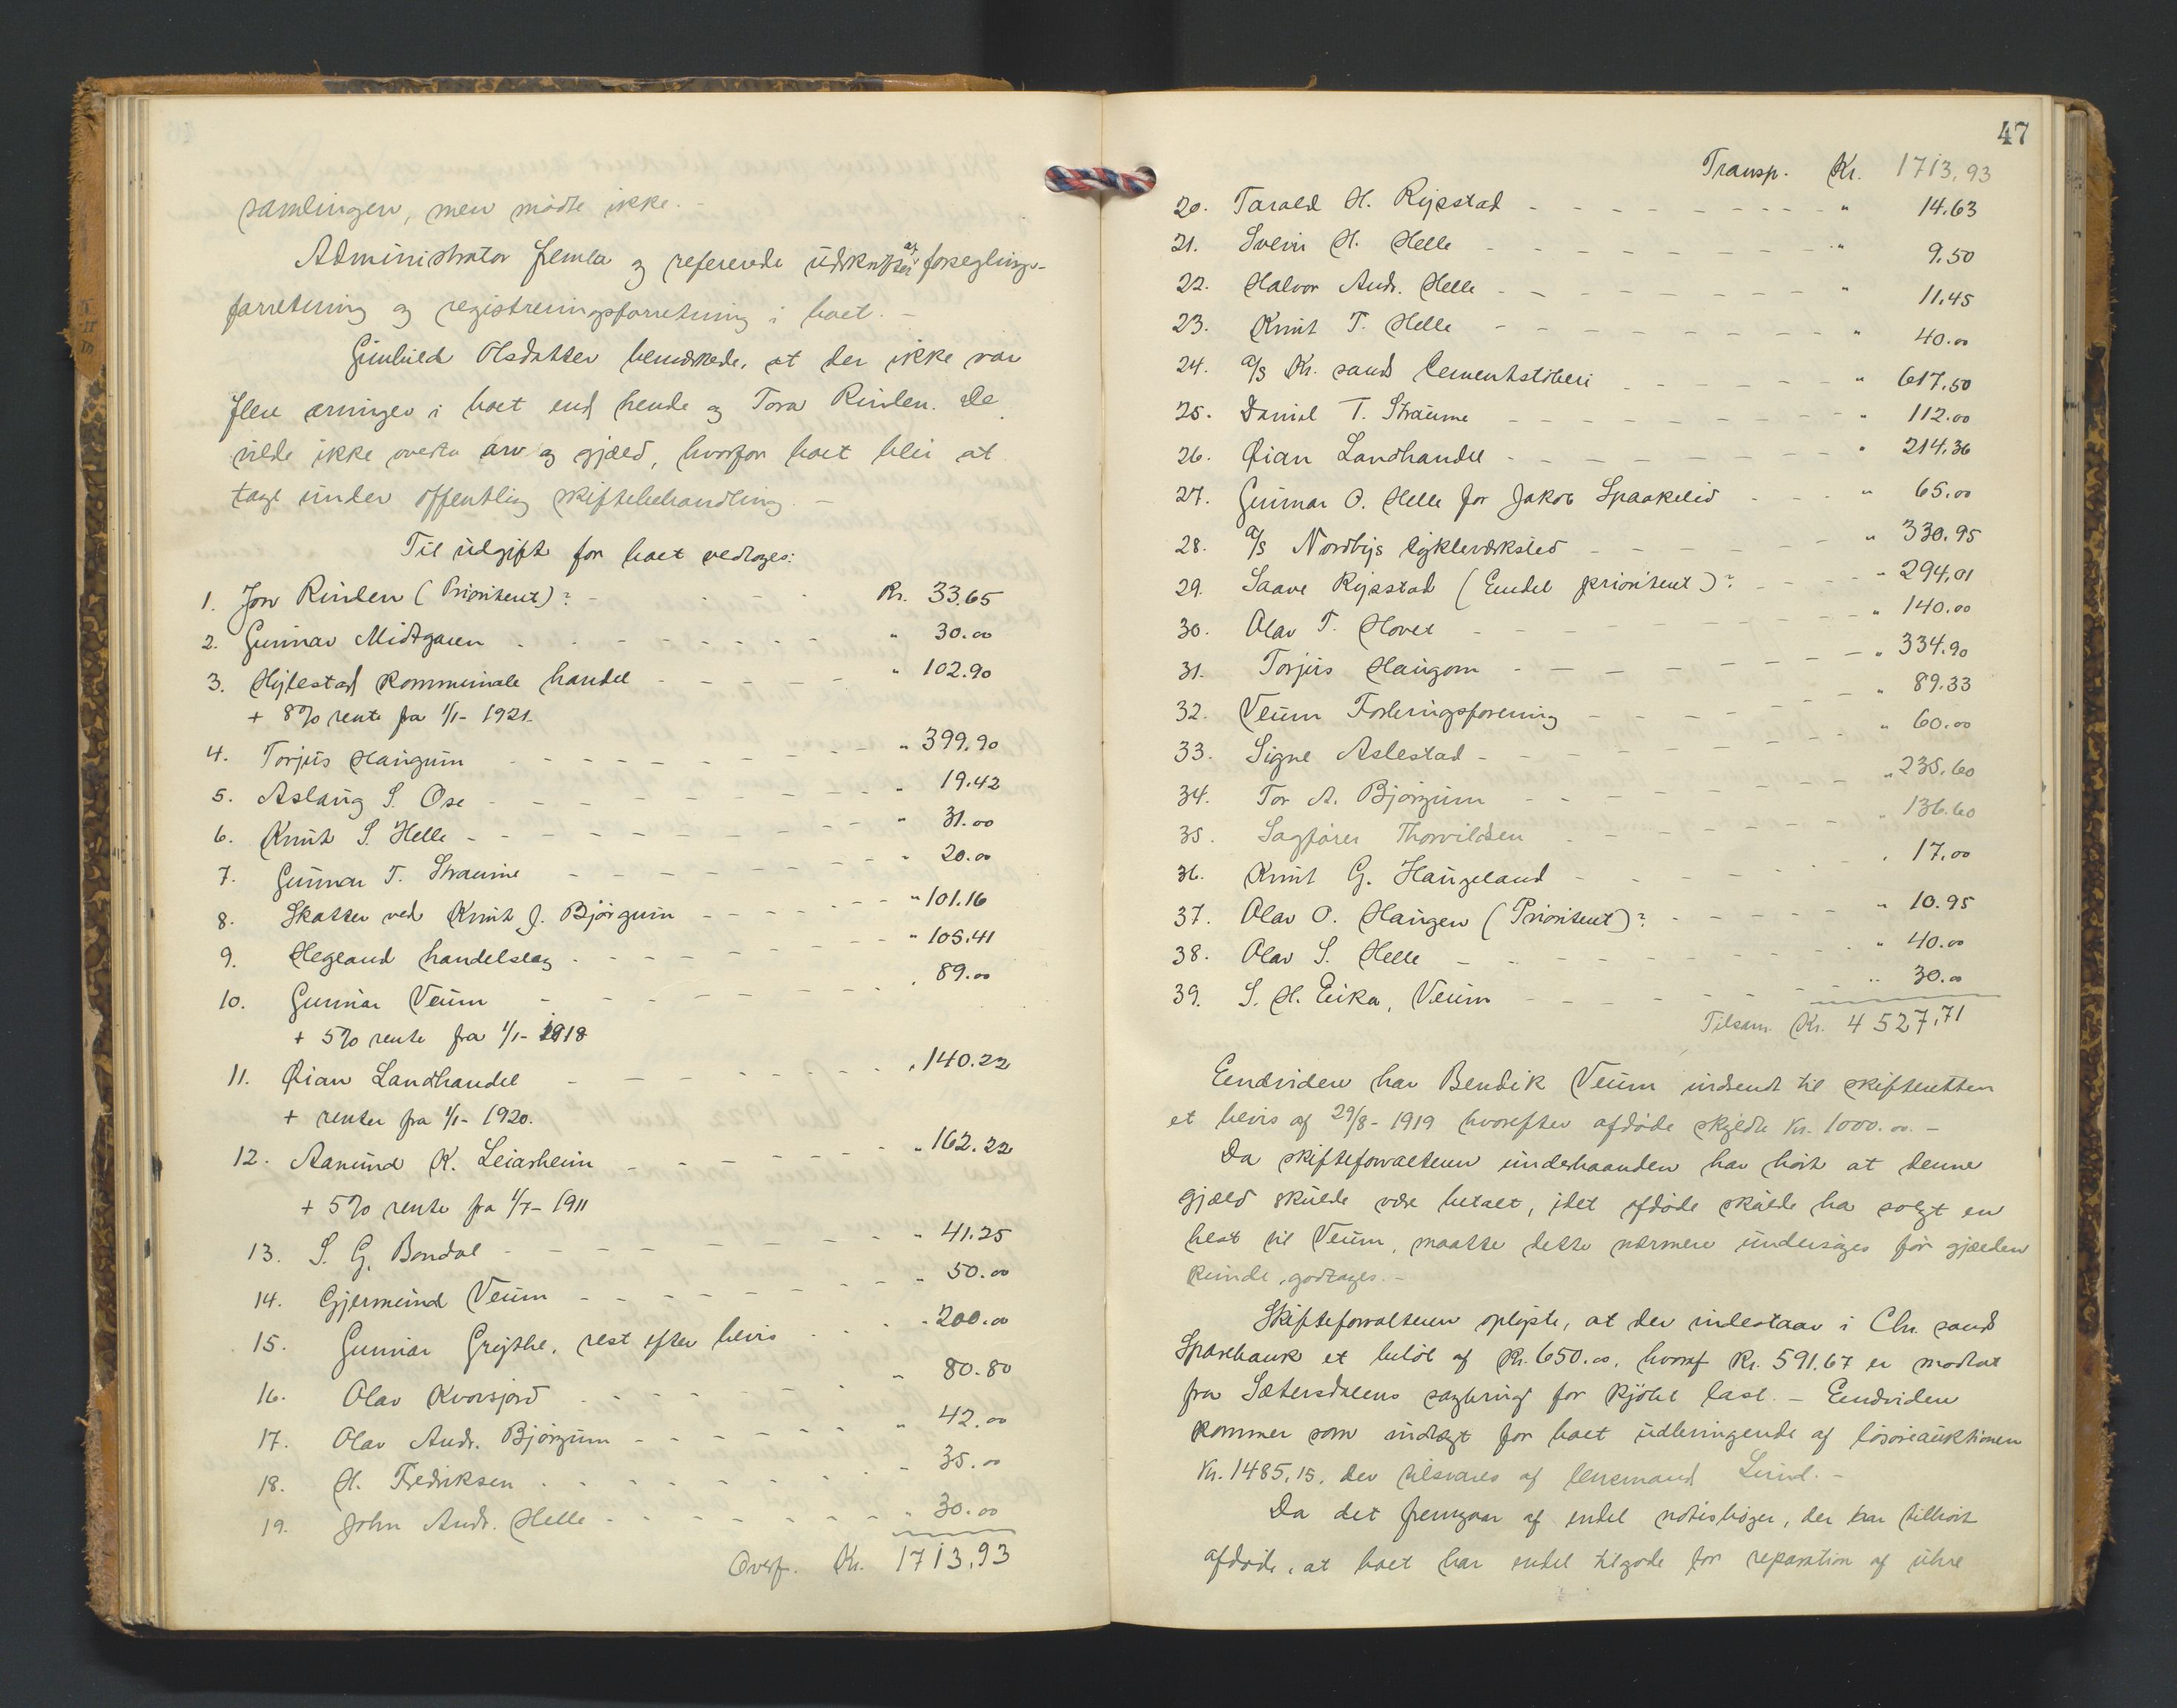 samlingen, men mødte ikke. -
Administrator fremla og refererede udskrifter af forseglings-
forretning og registreringsforretning i boet. -
Gunhild Olsdatter bemærkede, at der ikke var
flere arvinger i boet end hende og Tora Rinden. De
vilde ikke overta arv og gjæld, hvorfor boet blir at
tage under offentlig skiftebehandling. -
Til udgift for boet vedtoges:
1. Jon Rinden (Prioritent)? - Kr. 33.65
2. Gunnar Midtgaren - " 30.00
3. Hylestad kommunale handel - " 102.90
+ 8% rente fra 1/1- 1921.
4. Torjus Haugum - " 399.90
5. Aslaug S. Ose - " 19.42
6. Knut S. Helle - " 31.00
7. Gunnar T. Straume - " 20.00
8. Skatter ved Knut J. Bjørgum - " 101.16
9. Hegland handelslag - " 105.41
10. Gunnar Veum - " 89.00
+ 5% rente fra 1/1- 1918
11. Øian Landhandel - " 140.22
+ renter fra 1/1- 1920.
12. Aanund K. Leiarheim - " 162.22
+ 5% rente fra 1/7- 1911
13. S. G. Bondal - " 41.25
14. Gjermund Veum - " 50.00
15. Gunnar Greibke, rest efter bevis - " 200.00
16. Olav Kvorsjord - " 80.80
17. Olav Andr. Bjørgum - " 42.00
18. H. Fredriksen - " 35.00
19. John Andr. Helle - " 30.00
Overf. Kr. 1713,93
47
Transp. Kr. 1713,93
20. Tarald H. Rysstad - " 14.63
21. Svein H. Helle - " 9.50
22. Halvor Andr. Helle - " 11.45
23. Knut T. Helle - " 40.00
24. A/S Kr.sands Cementstøberi - " 617.50
25. Daniel T. Straume - " 112.00
26. Øian Landhandel - " 214.36
27. Gunnar O. Helle for Jakob Spaakelid - " 65.00
28. A/S Nordbys Cykleværksted - " 330.95
29. Saave Rysstad (Endel prioritent)? - " 294,01
30. Olav T. Hovet - " 140.00
31. Torjus Haugom - " 334.90
32. Veum Forleringsforening - " 89.33
33. Signe Aslestad - " 60.00
34. Tor A. Bjørgum - " 235.60
35. Sagfører Thorvildsen - " 136.60
36. Knut G. Haugeland - " 17.00
37. Olav O. Haugen (Prioritent)? - " 10.95
38. Olav S. Helle - " 40.00
39. S. H. Eika, Veum - " 30.00
Tilsam. Kr. 4527,71
Endvidere har Bendik Veum indsendt til skifteretten
et bevis af 29/8- 1919 hvorefter afdøde skyldte Kr. 1000.00. -
Da skifteforvalteren underhaanden har hørt at denne
gjæld skulde være betalt, idet afdøde skulde ha solgt en
hest til Veum, maatte dette nærmere undersøges før gjælden
kunde godtages. -
Skifteforvalteren oplyste, at der indestaar i Chr.sands
Sparebank et beløb af Kr. 650.00, hvoraf Kr. 591.67 er modtat
fra Sætersdalens sagbrug for kjøbt last. - Endvidere
kommer som indtægt for boet udbringende af løsøreauktionen
Kr. 1485,15, der tilsvares af lensmand Lund. -
Da det fremgaar af endel notisbøger, der har tilhørt
afdøde, at boet har endel tilgode for reparation af uhre